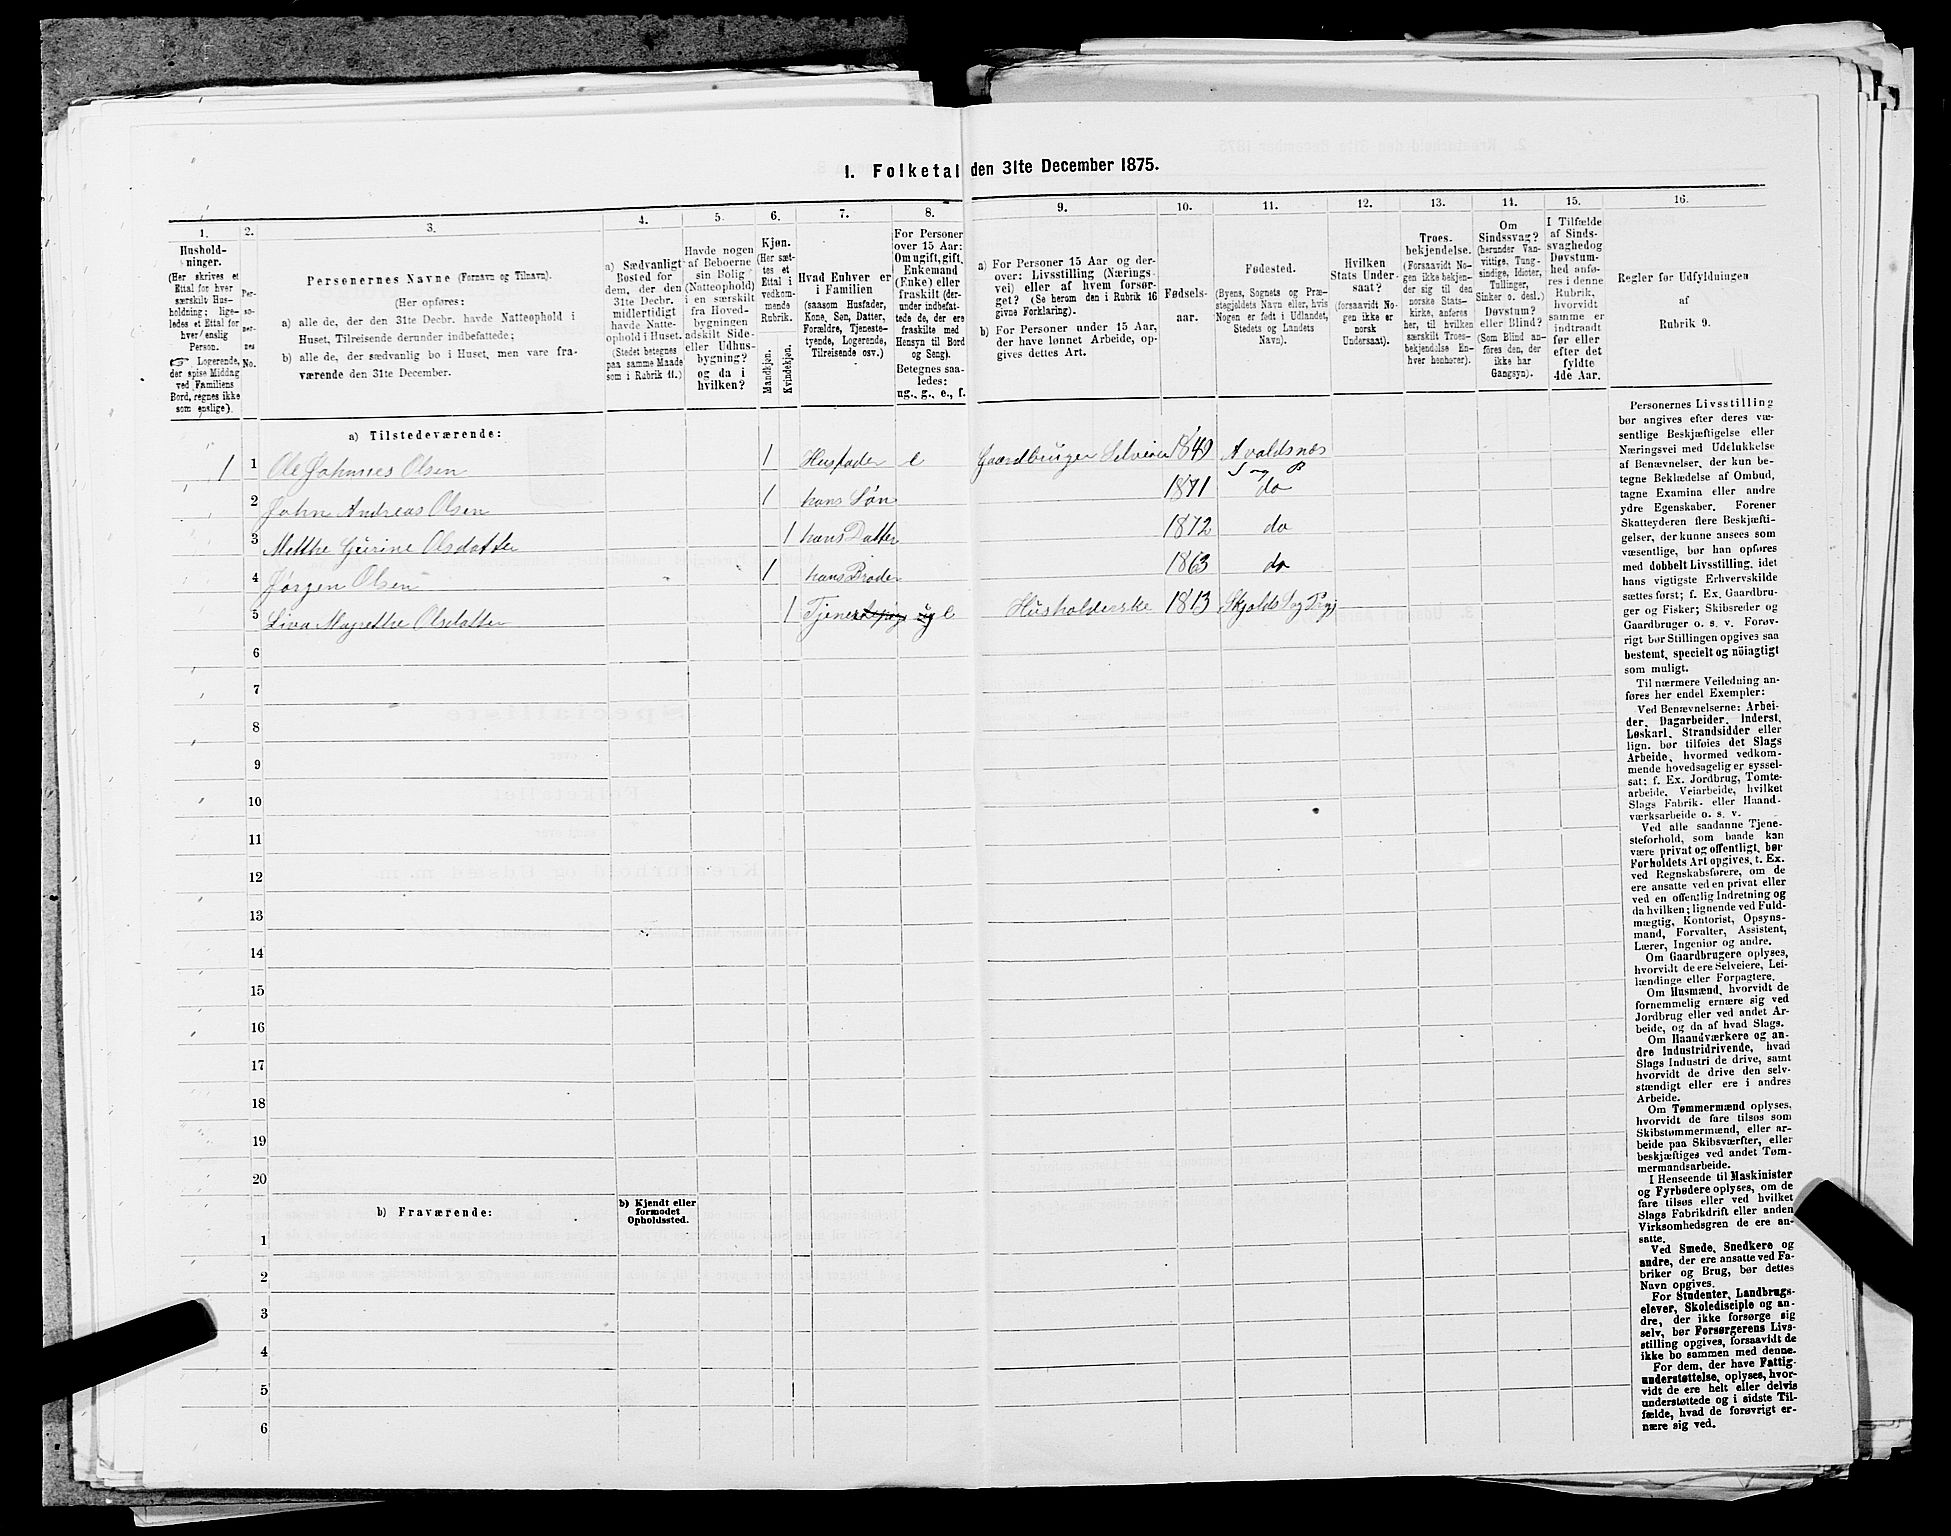 1. Folketal den 31te December 1875.
1.
2.
3.
4.
5.
6.
7.
8.
9.
10.
11.
12.
13.
14.
15.
16.
Hushold-
ninger.
(Her skrives et
Ettal for hver
særskilt Hus-
holdning; lige-
ledes et Ettal for
hver enslig
Person.
☞ Logerende,
der spise Middag
ved Familiens
Bord, regnes ikke
som enslige).
Per-
so-
ner-
nes
No.
Personernes Navne (Fornavn og Tilnavn).
(Her opføres:
a) alle de, der den 31te Decbr. havde Natteophold i
Huset, Tilreisende derunder indbefattede;
b) alle de, der sædvanlig bo i Huset, men vare fra-
værende den 31te December.
a) Sædvanligt
Bosted for
dem, der den
31te Decbr.
midlertidigt
havde Natte-
ophold i Huset.
(Stedet betegnes
paa samme Maade
som i Rubrik 11.)
Havde nogen
af Beboerne
sin Bolig
(Natteophold)
i en særskilt
fra Hoved-
bygningen
adskilt Side-
eller Udhus-
bygning?
og da i
hvilken?
Kjøn.
(Her sæt-
tes et
Ettal i
vedkom-
mende
Rubrik.
Mandkjøn.
Kvindekjøn.
Hvad Enhver er
i Familien
(saasom Husfader,
Kone, Søn, Datter,
Forældre, Tjeneste-
tyende, Logerende,
Tilreisende osv.)
For Personer
over 15 Aar:
Om ugift, gift,
Enkemand
(Enke) eller
fraskilt (der-
under indbefat-
tede de, der ere
fraskilte med
Hensyn til Bord
og Seng).
Betegnes saa-
ledes:
ug., g., e., f.
a) For Personer 15 Aar og der-
over: Livsstilling (Nærings-
vei) eller af hvem forsør-
get? (Se herom den i Rubrik 16
givne Forklaring).
b) For Personer under 15 Aar,
der have lønnet Arbeide, op-
gives dettes Art.
Fødsels-
aar.
Fødested.
(Byens, Sognets og Præ-
stegjeldets Navn eller, hvis
Nogen er født i Udlandet,
Stedets og Landets
Navn).
Hvilken
Stats Under-
saat?
(forsaavidt No-
gen ikke er
norsk
Undersaat).
Troes-
bekjendelse.
(Forsaavidt No-
gen ikke bekjen-
der sig til den
norske Stats-
kirke, anføres
her, til hvilken
særskilt Troes-
bekjendelse En-
hver henhører).
Om
Sindssvag?
(herunder Van-
vittige, Tung-
sindige, Idioter,
Tullinger,
Sinker o. desl.)
Døvstum?
eller Blind?
(Som Blind an-
føres den, der
ikke har
Gangsyn).
I Tilfælde
af Sinds-
svaghed og
Døvstum-
hed anfø-
res i denne
Rubrik,
hvorvidt
samme er
indtraadt
før eller
efter det
fyldte
4de Aar.
Regler for Udfyldningen
af
Rubrik 9.
a) Tilstedeværende:
1 1 Ole Johannes Olsen 1 Husfader e Gaardbruger Selveier 1840 Avaldsnes S og P
2 John Andreas Olsen 1 hans Søn 1871 do
3 Metthe Gurine Olsdatter 1 hans Datter 1872 do
4 Jørgen Olsen 1 hans Broder 1863 do
5 Liva Magrethe Olsdatter 1 e Husholderske 1813
6
7
8
9
10
11
12
13
14
15
16
17
18
19
20
b) Fraværende:
b) Kjendt eller
formodet
Opholdssted.
1
2
3
4
5
6
Personernes Livsstilling
bør angives efter deres væ-
sentlige Beskjæftigelse eller
Næringsvei med Udelukkelse
af Benævnelser, der kun be-
tegne Beklædelse af Ombud,
tagne Examina eller andre
ydre Egenskaber. Forener
Skatteyderen flere Beskjæfti-
gelser, der kunne ansees som
væsentlige, bør han opføres
med dobbelt Livsstilling, idet
hans vigtigste Erhvervskilde
sættes først; f. Ex. Gaardbru-
ger og Fisker; Skibsreder og
Gaardbruger o. s. v. Forøv-
rigt bør Stillingen opgives saa
bestemt, specielt og nöiagtigt
som muligt.
Til nærmere Veiledning an-
føres her endel Exempler:
Ved Benævnelserne: Arbei-
der, Dagarbeider, Inderst,
Løskarl, Strandsidder eller
lign. bør tilføies det Slags
Arbeide, hvormed vedkom-
mende hovedsagelig er syssel-
sat; f. Ex. Jordbrug, Tomte-
arbeide, Veiarbeide, hvilket
Slags Fabrik- eller Haand-
værksarbeide o. s. v.
Ved alle saadanne Tjene-
steforhold, som baade kan
være privat og offentligt, bør
Forholdets Art opgives, t. Ex.
ved Regnskabsførere, om de
ere ansatte ved en privat eller
ved en offentlig Indretning og
da hvilken; lignende ved Fuld-
mægtig, Kontorist, Opsyns-
mand, Forvalter, Assistent,
Lærer, Ingeniør og andre.
Om Gaardbrugere oplyses,
hvorvidt de ere Selveiere, Lei-
lændinge eller Forpagtere.
Om Husmænd, hvorvidt de
fornemmelig ernære sig ved
Jordbrug eller ved andet Ar-
beide, og da af hvad Slags.
Om Haandværkere og an-
dre Industridrivende, hvad
Slags Industri de drive, samt
hvorvidt de drive den selv-
stændigt eller ere i andres
Arbeide.
Om Tømmermænd oplyses,
hvorvidt de fare tilsøs som
Skibstømmermænd, eller ar-
beide paa Skibsværfter, eller
beskjæftiges ved andet Tøm-
mermandsarbeide.
I Henseende til Maskinister
og Fyrbødere oplyses, om de
fare tilsøs eller ved hvilket
Slags Fabrikdrift eller anden
Virksomhedsgren de ere an-
satte.
Ved Smede, Snedkere og
andre, der ere ansatte ved Fa-
briker og Brug, bør dettes
Navn opgives.
For Studenter, Landbrugs-
elever, Skoledisciple og an-
dre, der ikke forsørge sig
selv, bør Forsørgerens Livs-
stilling opgives, forsaavidt de
ikke bo sammen med denne.
For dem, der have Fattig-
understøttelse, oplyses, hvor-
vidt de ere helt eller delvis
understøttede og i sidste Til-
fælde, hvad de forøvrigt er-
nære sig ved.